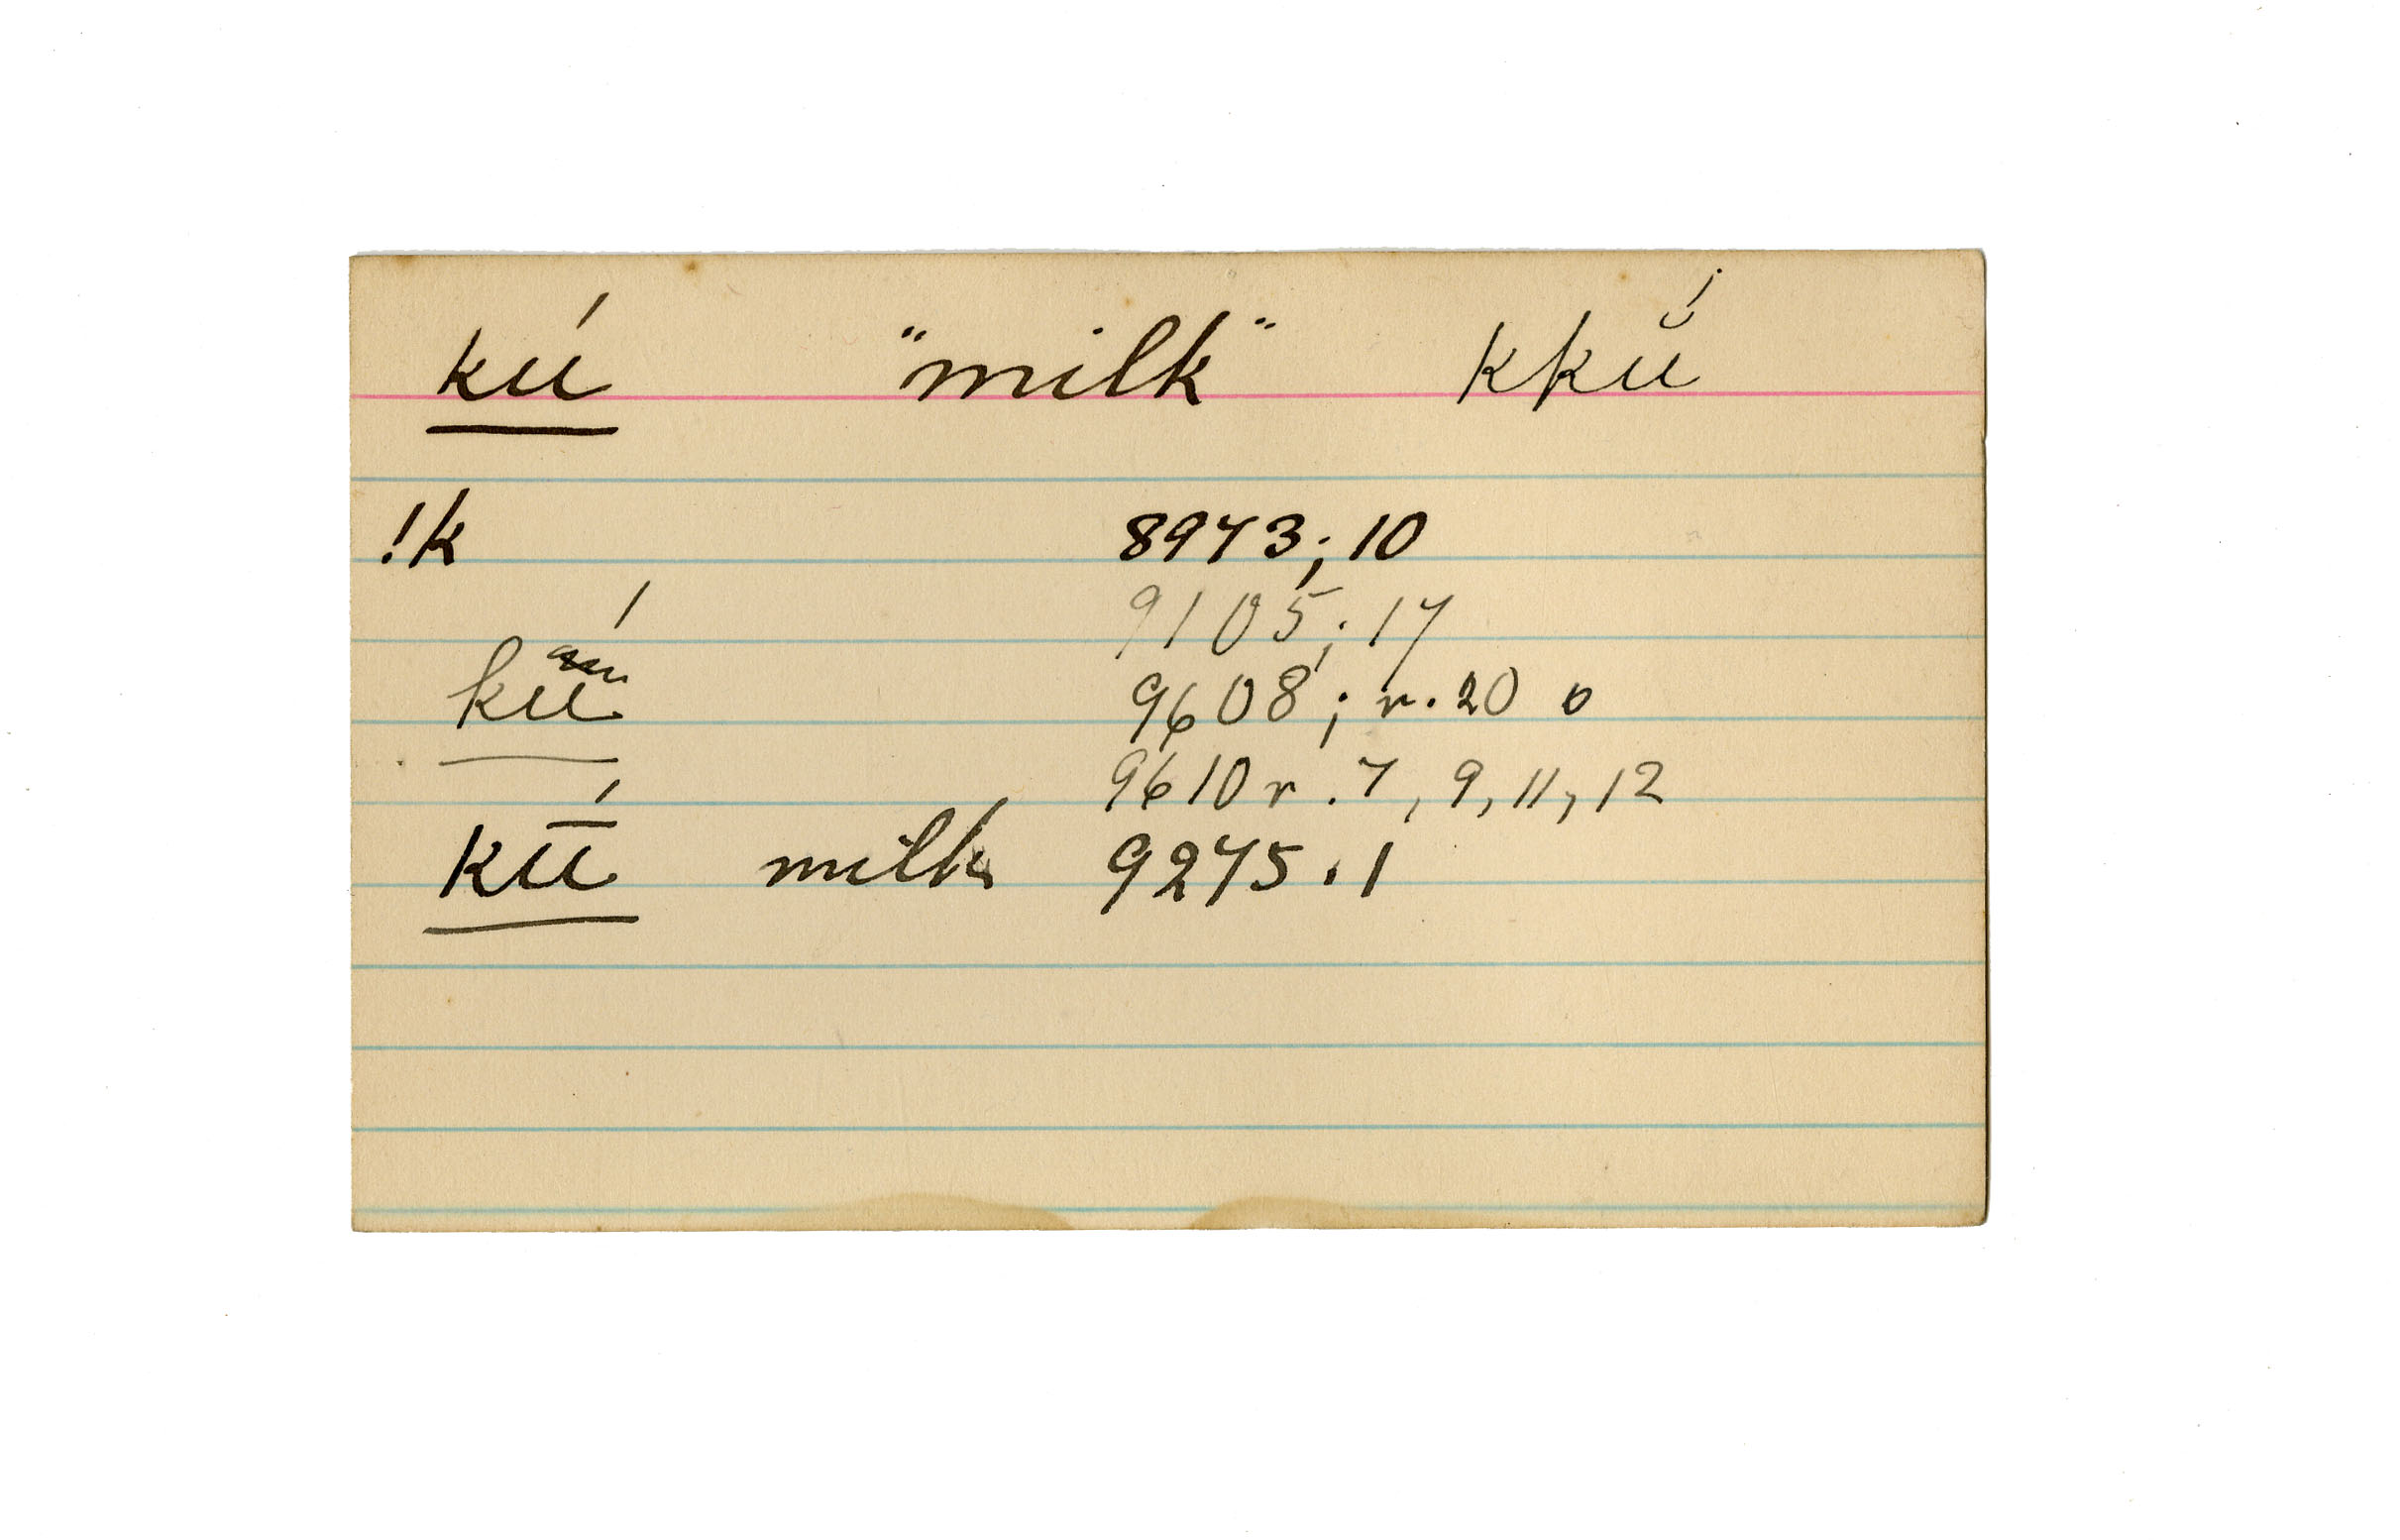 kú "milk" kkŭ́
!k 8973; 10
9105; 17
kú 9608; r. 20 o
9610 r. 7, 9, 11, 12
kū́ milk 9275. 1